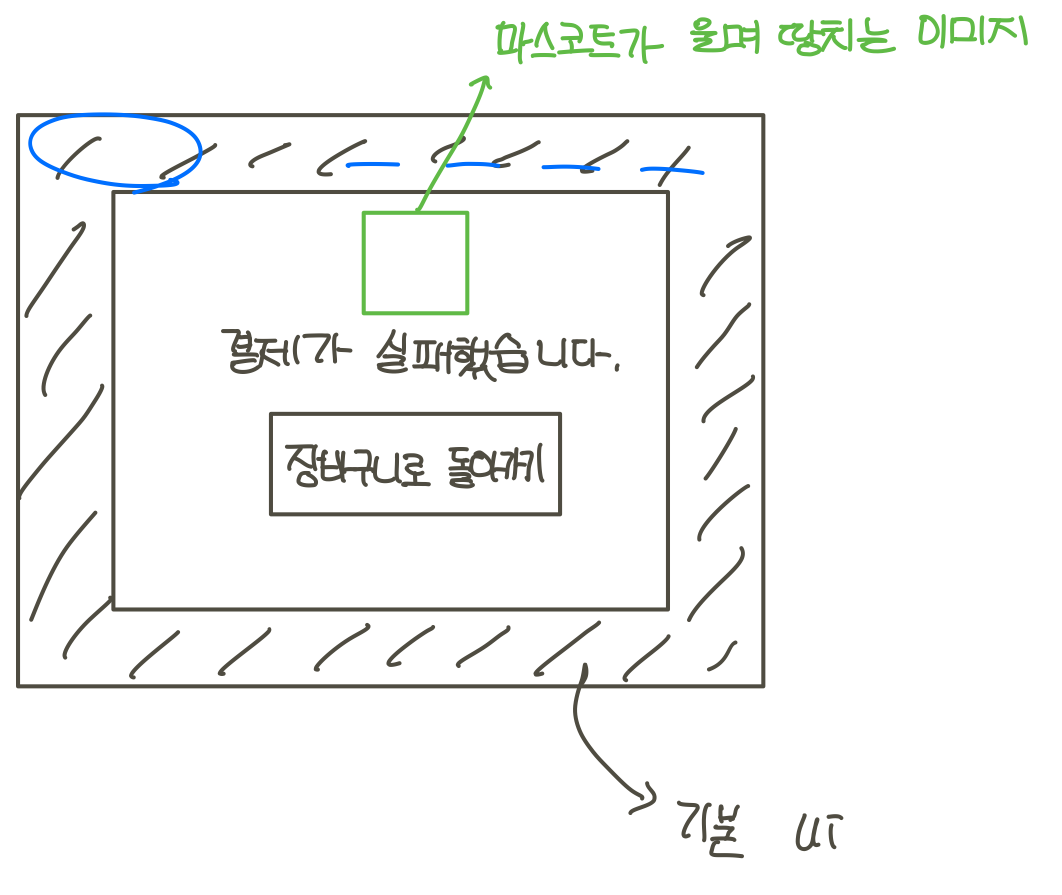 마스코트가 울며 땅치는 이미지
결제가 실패했습니다.
장바구니로 돌아가기
기본 UI